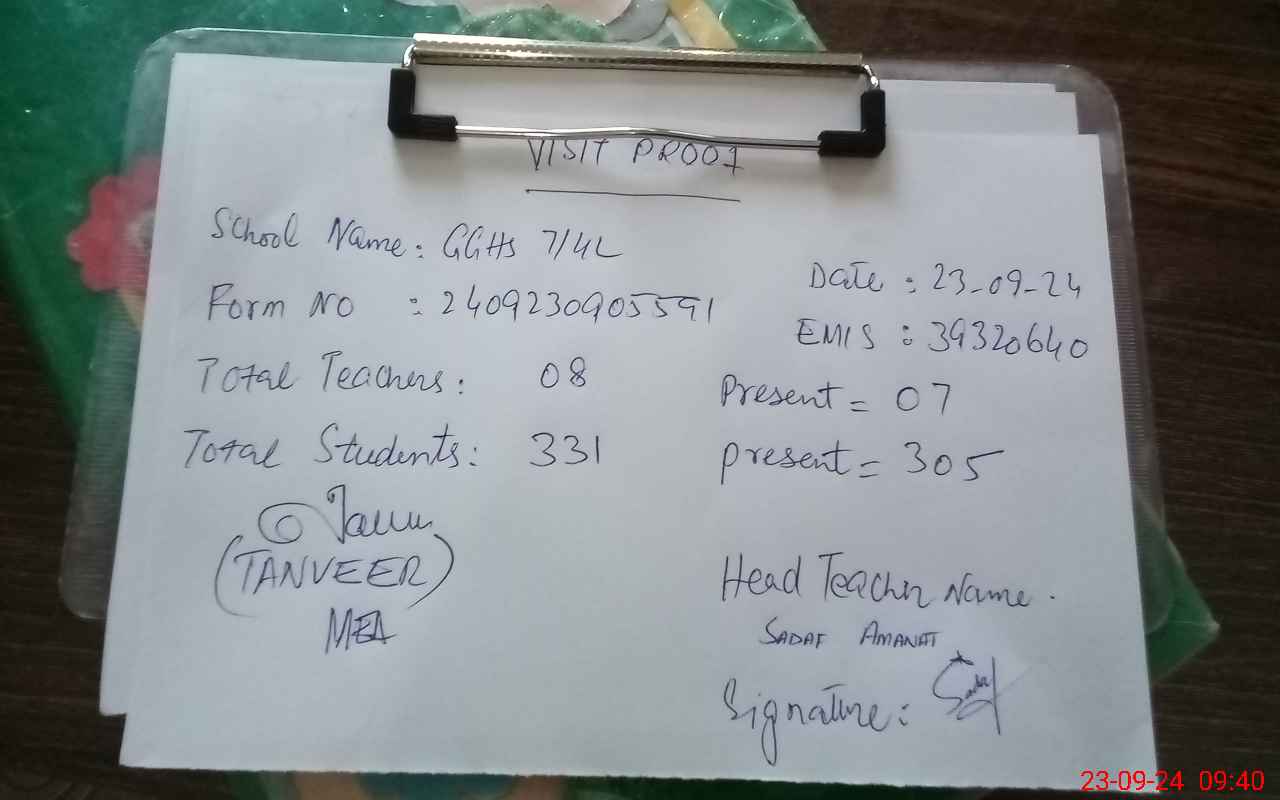 VISIT PROOF
School Name: GGHS 7/4L
Date : 23-09-24
Form NO : 2409230905591
EMIS : 39320640
Total Teachers: 08
Present = 07
Total Students: 331
present = 305
(TANVEER)
MEA
Head Teacher Name.
SADAF AMANAT
Signature:
23-09-24 09:40